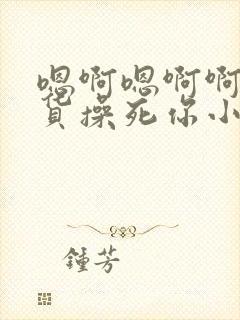 嗯啊嗯啊啊
货操死你小
鍾芳